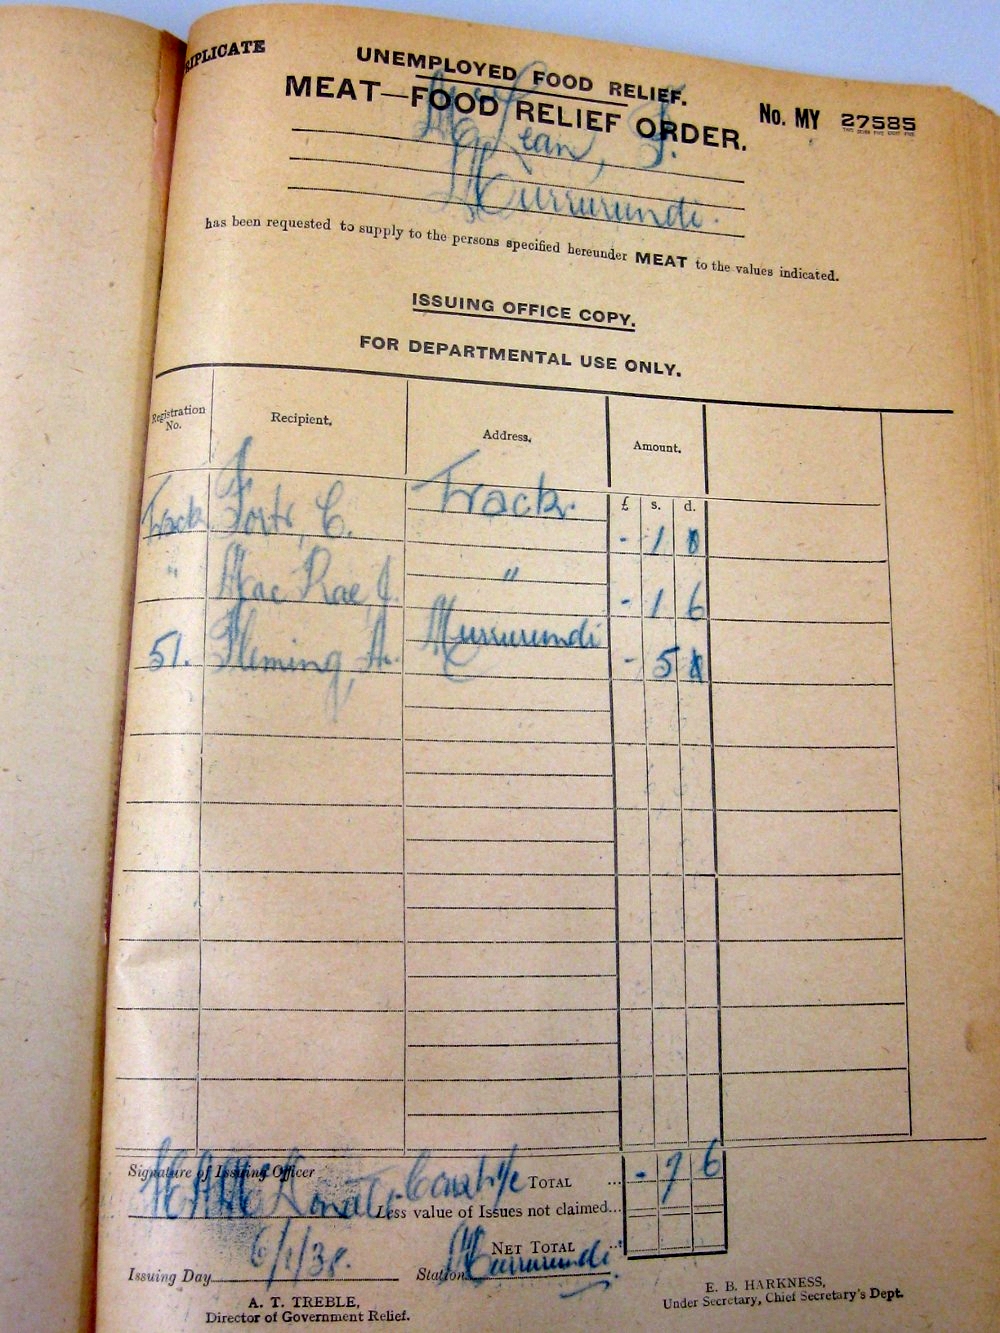 RIPLICATE
UNEMPLOYED FOOD RELIEF.
MEAT—FOOD RELIEF ORDER.
No. MY 27585
McLean, F.
Murrurundi.
has been requested to supply to the persons specified hereunder MEAT to the values indicated.
ISSUING OFFICE COPY.
FOR DEPARTMENTAL USE ONLY.
Registration No. Recipient. Address. Amount.
£ s. d.
Track C. Track. - 1
" Mac Rae, J. " - 1 6
51. Fleming, A. Murrurundi - 5
Signature of Issuing Officer
TOTAL ... - 7 6
Less value of Issues not claimed...
NET TOTAL ...
Issuing Day 6/1/38. Station Murrurundi.
A. T. TREBLE,
Director of Government Relief.
E. B. HARKNESS,
Under Secretary, Chief Secretary's Dept.